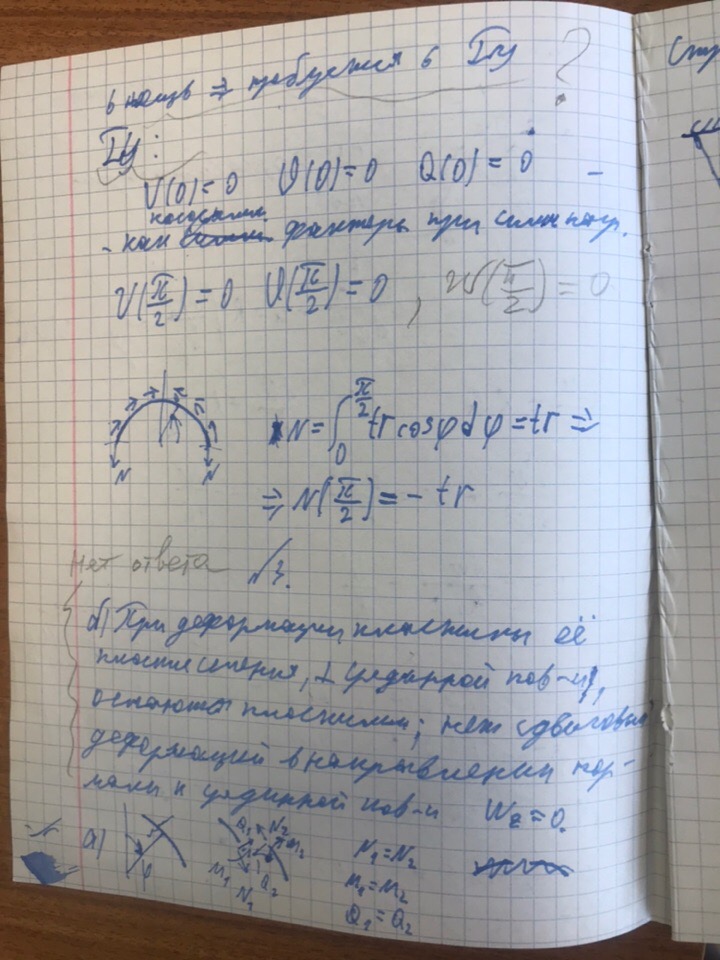 6 неизв ⇒ требуется 6 ГУ ?
ГУ:
V(0)=0 θ(0)=0 Q(0)=0 -
кососимм.
- как факторы при симм нагр.
V(π/2)=0 θ(π/2)=0 , W(π/2)=0
N N
N=∫₀^(π/2) tr cosφ dφ = tr ⇒
⇒ N(π/2) = - tr
Нет ответа √3.
б) При деформации пластины её
плоские сечения, ⊥ срединной пов-и,
остаются плоскими; нет сдвиговых
деформаций в направлении нор-
мали к срединной пов-и
а) φ
Q₁ N₂ M₂
M₁ Q₂
N₁
N₁=N₂
M₁=M₂
Q₁=Q₂
Стр